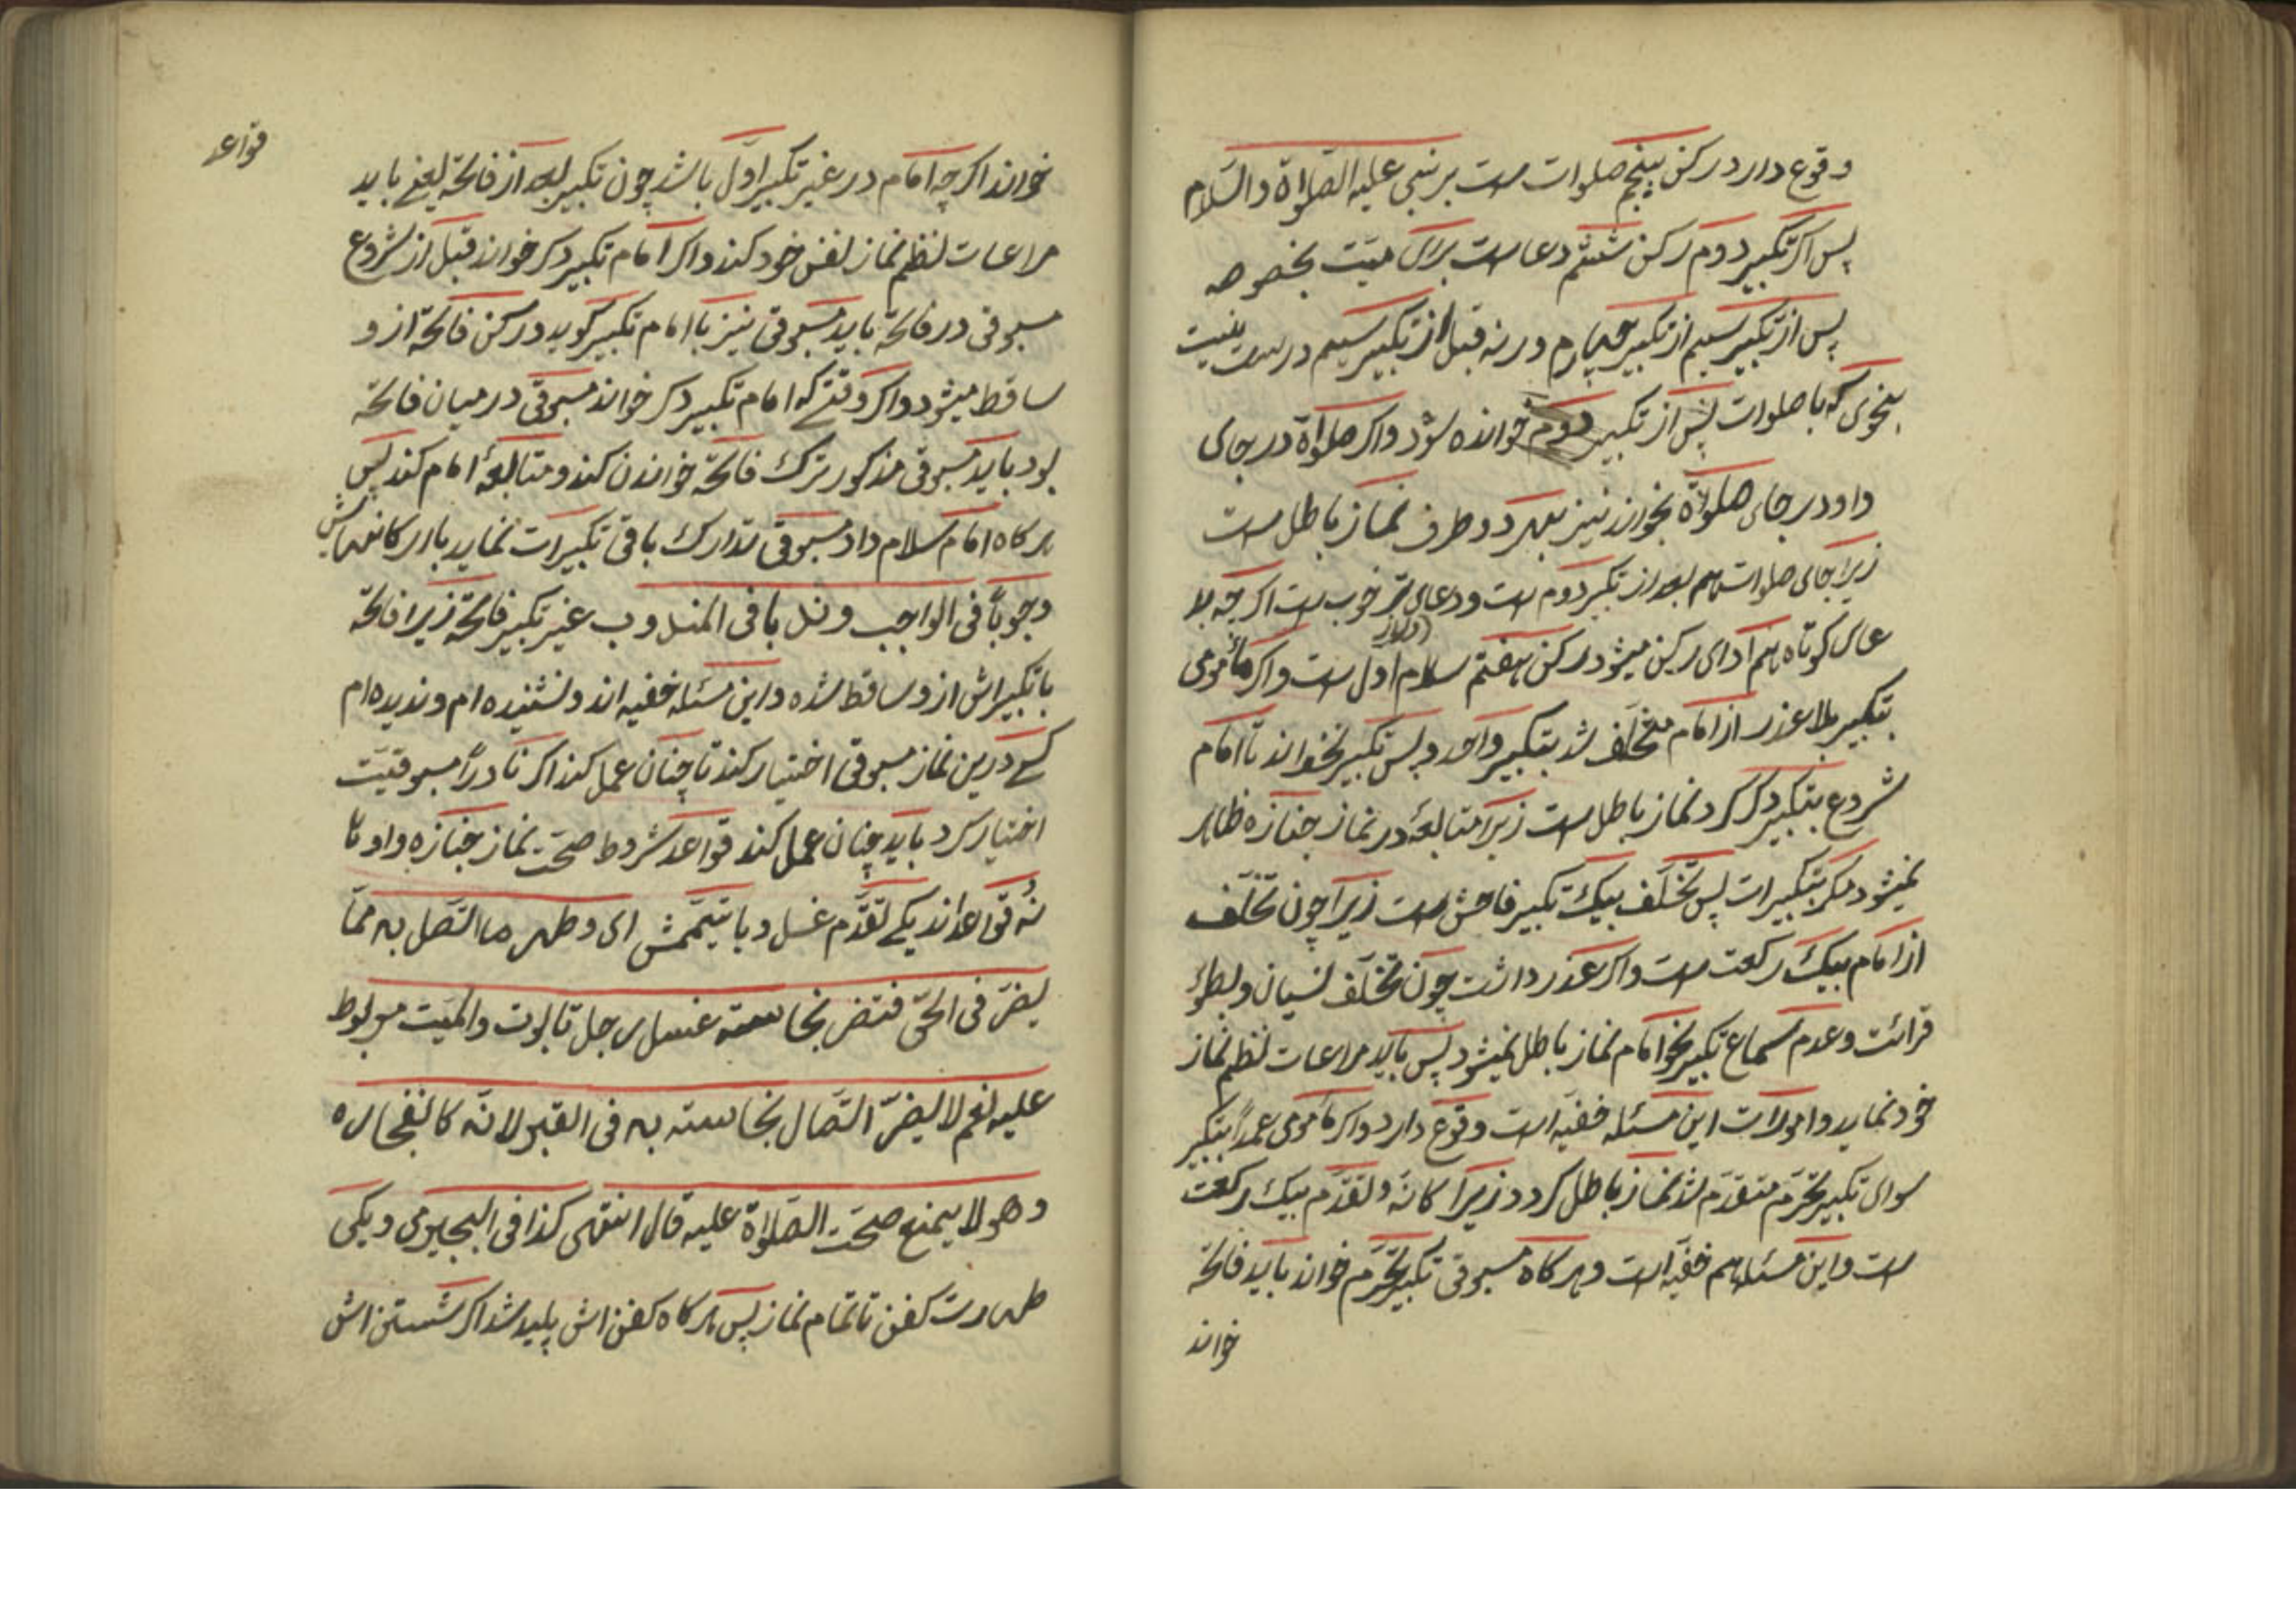 وقوع دارد رکن پنجم صلوات ست بر نبی علیه الصّلوٰة والسّلام
پس اکر تکبیر دوم رکن ششم دعاست برای میّت بخصوصه
پس از تکبیر سیم از تکبیر چهارم ورنه قبل از تکبیر سیم درست نیست
بنحوی که با صلوات پس از تکبیر دوم خوانده شود واکر صلوٰة در جای
داودر جای صلوٰة بخواند نیز بهر دو طرف نماز باطل ست
زیرا جای صلوات هم بعد از تکبیر دوم ست ودعای خوب ست اکرچه بلا
عای کوتاه هم ادای رکن میشود رکن هفتم سلام اول ست واکر مأمومی
بتکبیر بلا عذر از امام متخلّف شد بتکبیر واحد وپس تکبیر نخواند تا امام
شروع بتکبیر دکر کرد نماز باطل ست زیرا متابعهٔ در نماز جنازه ظاهر
نمیشود مکر بتکبیرات پس تخلّف بیک تکبیر فاحش ست زیرا چون تخلّف
از امام بیک رکعت ست واکر عذر داشت چون تخلّف نسیان وبطوٴ
قرائت وعدم سماع تکبیر امام نماز باطل نمیشود پس باید مراعات نظم نماز
خود نماید این مسئله خفیّه است وقوع دارد واکر مأمومی عمداً بتکبیر
سوای تکبیر تحرّم متقدّم شد نماز باطل کردد زیرا کانّه ولتقدّم بیک رکعت
ست واین مسئله هم خفیّه است وهر کاه مسبوقی تکبیر تحرّم خواند باید فاتحه
خواند
قواعد
خواند اکرچه امام در غیر تکبیر اوّل باشد چون تکبیر بعد از فاتحه یعنی باید
مراعات نظم نماز نفس خود کند واکر امام تکبیر دکر خواند قبل از شروع
مسبوقی در فاتحه باید مسبوقی نیز با امام تکبیر کوید ورکن فاتحه از و
ساقط میشود واکر وقتی که امام تکبیر دکر خواند مسبوقی در میان فاتحه
بود باید مسبوقی مذکور ترک فاتحه خواندن کند ومتابعهٔ امام کند پس
هر کاه امام سلام داد مسبوقی تدارک باقی تکبیرات نماید باارکانهااش
وجوباً فی الواجب وندبا فی المندوب غیر تکبیر فاتحه زیرا فاتحه
با تکبیراش از و ساقط شده واین مسئله خفیه اند ونشنیده ام وندیده ام
کسی درین نماز مسبوقی اختیار کند تا چنان عمل کند اکر نادراً مسبوقیّت
اختیار کرد باید چنان عمل کند قواعد شروط صحّت نماز جنازه واو تا
نُه قواعد اند یکی تقدّم غسل ویا تیمّمش ای وطهر ما اتّصل به ممّا
یضرّ فی الحیّ فتضر نجاسته غسل رجل تابوت والمیّت مربوط
علیه نعم لا یضرّ اتّصال نجاسته به فی القبر لانّه کانفجاره
وهو لا یمنع صحّت الصّلوٰة علیه قال انتهی کذا فی البجیرمی ویکی
طهارت کفن تا تمام نماز پس هر کاه کفن اش پلید شد اکر شستن اش